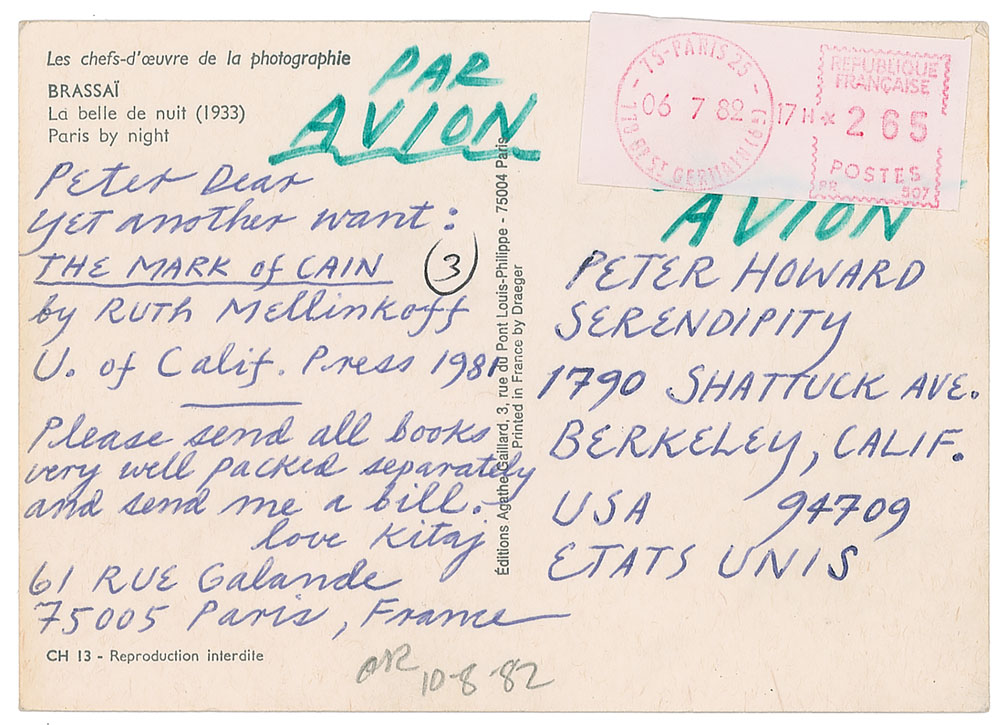 Les chefs-d'œuvre de la photographie
BRASSAÏ
La belle de nuit (1933)
Paris by night
PAR
AVION
Peter Dear
yet another want:
THE MARK of CAIN
3
by RUTH Mellinkoff
U. of Calif. Press 1981
Please send all books
very well packed separately
and send me a bill.-
love Kitaj
61 RUE Galande
75005 Paris, France
CH 13 - Reproduction interdite
10-8-82
Éditions Agathe Gaillard, 3, rue du Pont Louis-Philippe - 75004 Paris
Printed in France by Draeger
75-PARIS 25
06 7 82 17H
ST GERMAIN
REPUBLIQUE
FRANÇAISE
* 2 65
POSTES
907
AVION
PETER HOWARD
SERENDIPITY
1790 SHATTUCK AVE.
BERKELEY, CALIF.
USA 94709
ETATS UNIS